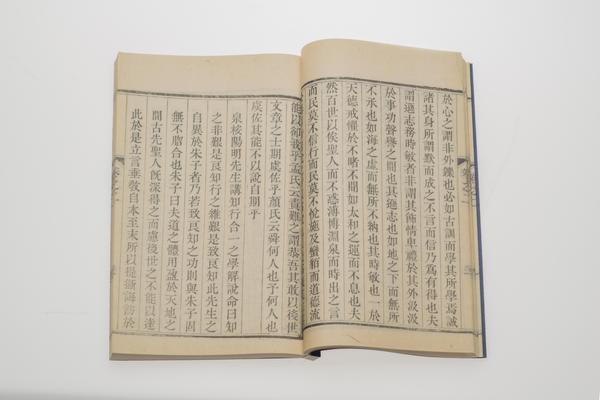 於心之謂非外鑠也必如古訓而學其所學焉誠
諸其身所謂默而成之不言而信乃爲有得也夫
謂遜志務時敏者非謂其飾情卑禮於其外汲汲
於事功聲譽之間也其遜志也如地之下而無所
不承也如海之虛而無所不納也其時敏也一於
天德戒懼於不睹不聞如太和之運而不息也夫
然百世以俟聖人而不惑溥博淵泉而時出之言
而民莫不信行而民莫不悅施及蠻貊而道德流
能以卻我乎孟氏云責難之謂恭吾其敢以後世
文章之士期虞佐乎顏氏云舜何人也予何人也
虞佐其能不以說自期乎
泉核陽明先生講知行合一之學解說命曰知
之非艱是良知行之維艱是致良知此先生之
自異於朱子者乃若致良知之功則與朱子固
無不脗合也朱子曰夫道之體用盈於天地之
間古先聖人旣深得之而慮後世之不能以達
此於是立言垂敎自本至末所以提撕誨誘於